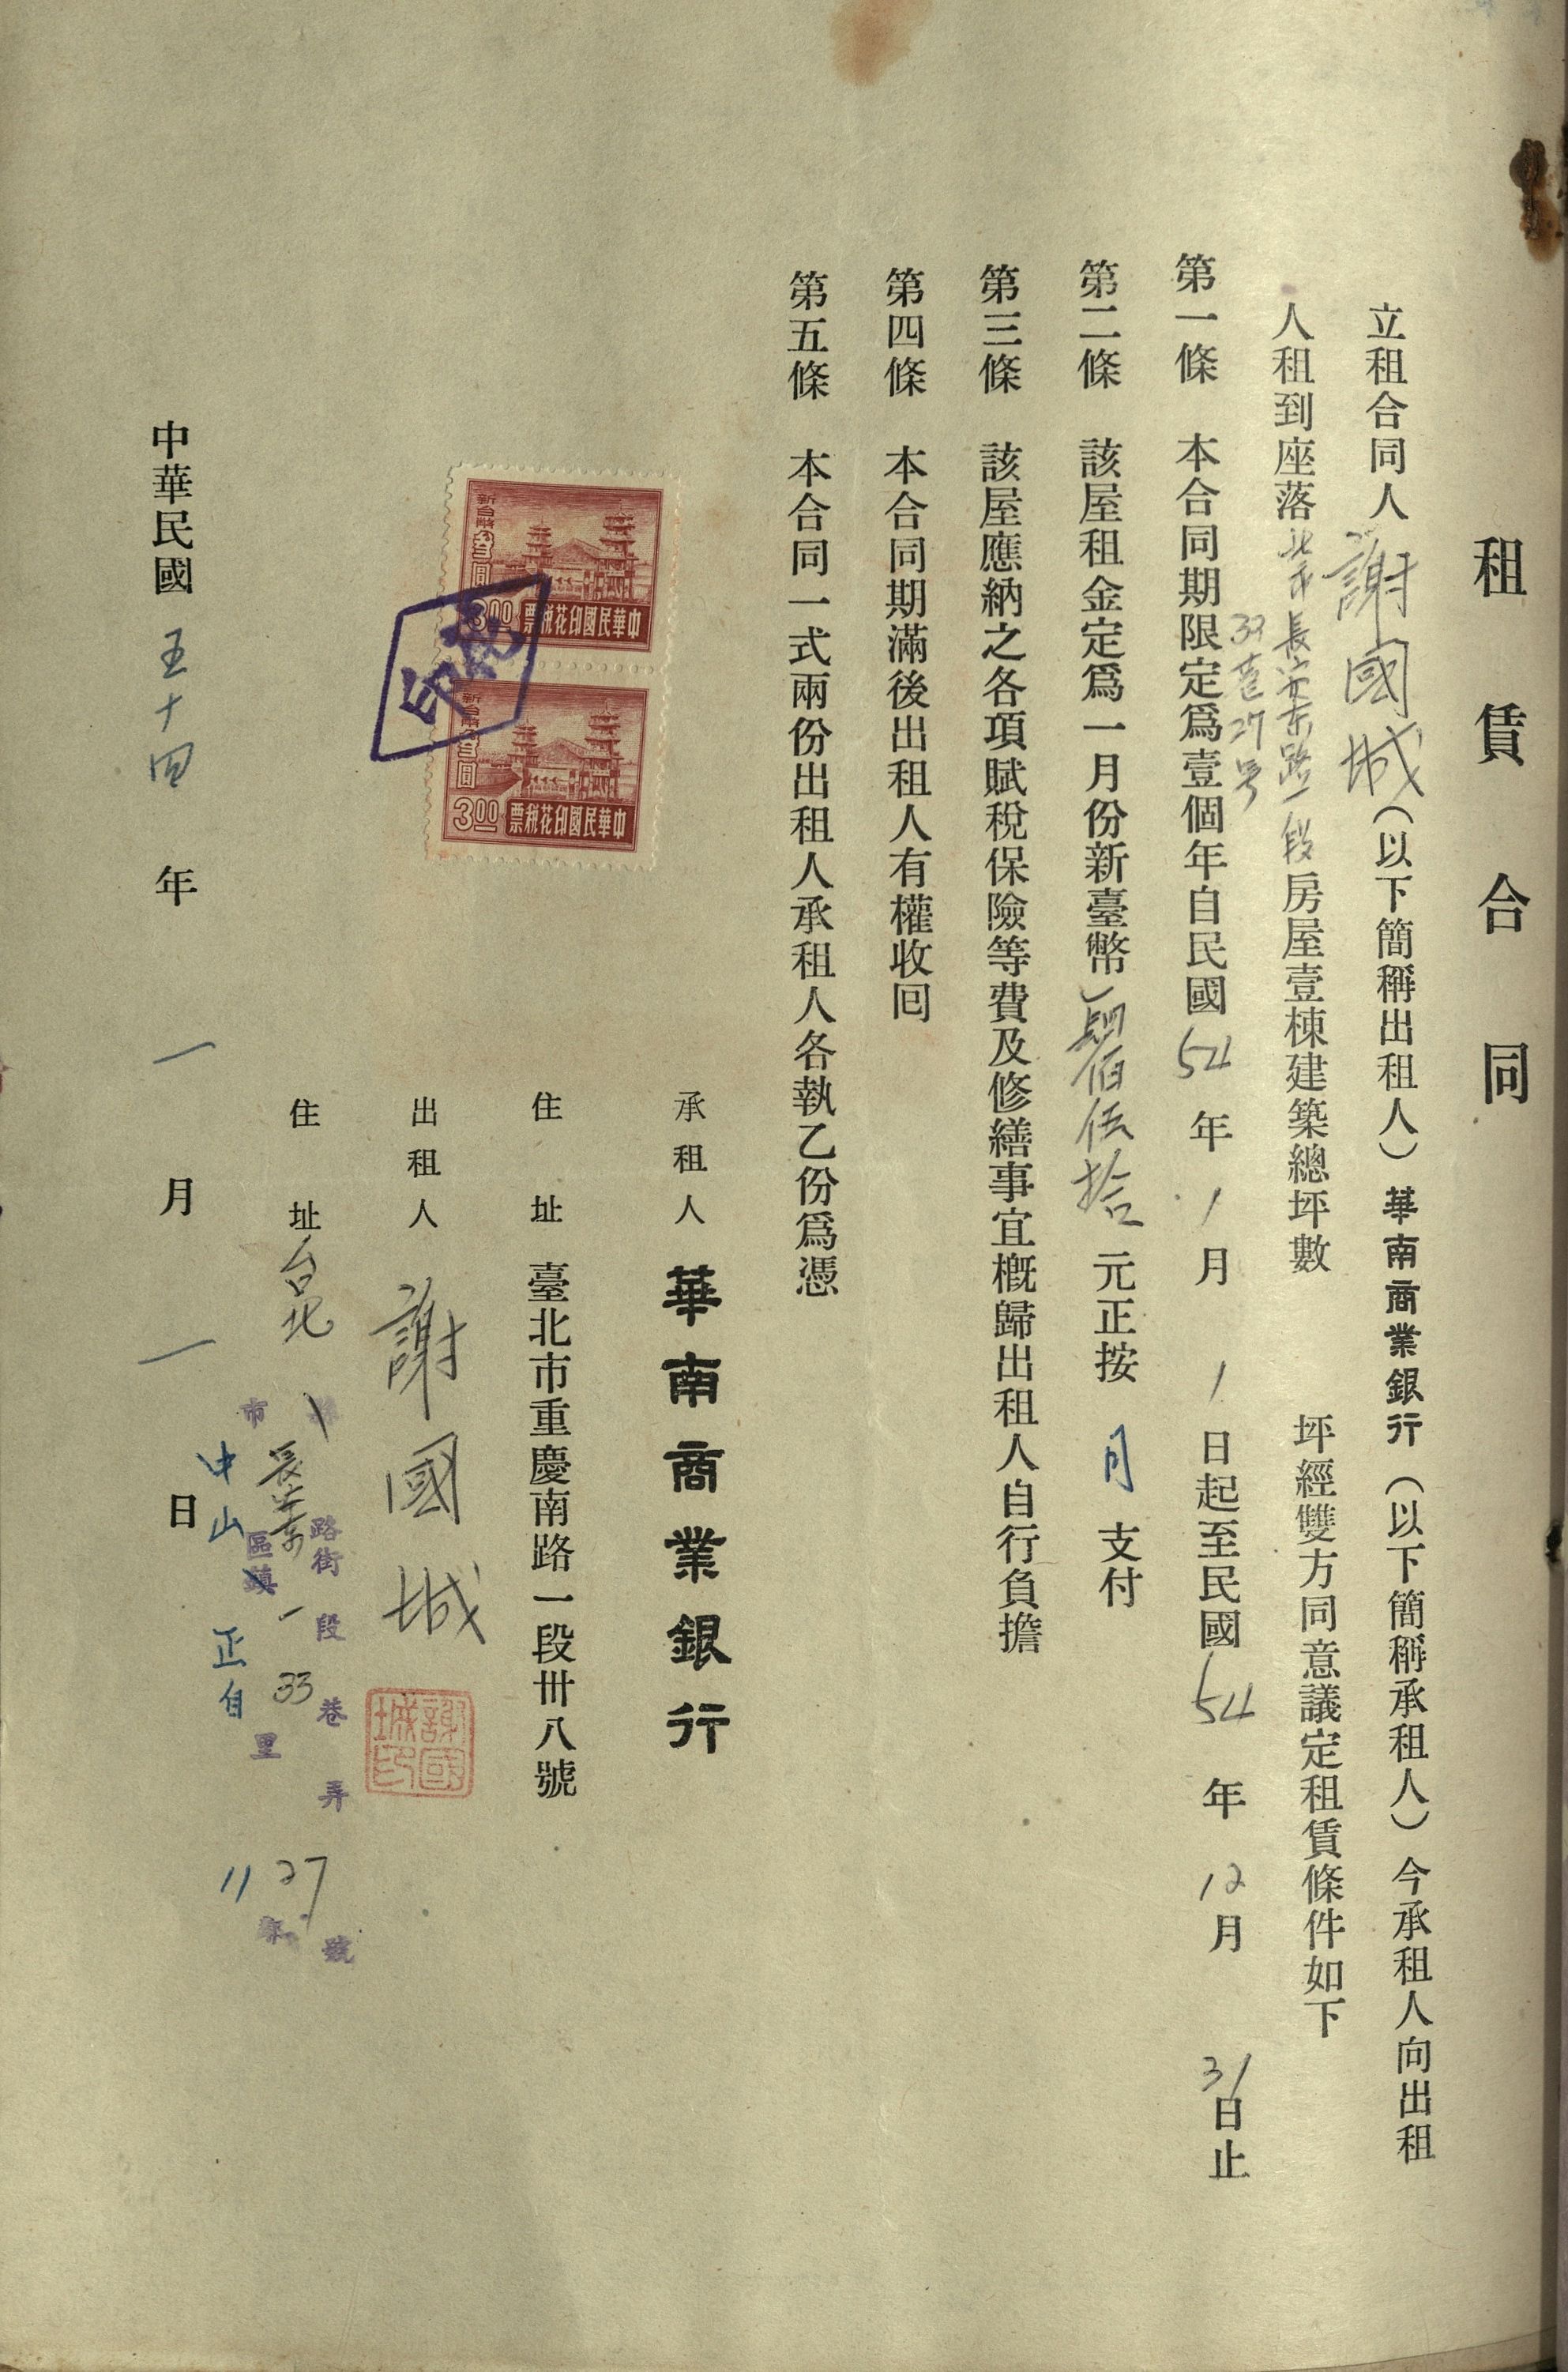 租賃合同
立租合同人謝國城（以下簡稱出租人）華南商業銀行（以下簡稱承租人）今承租人向出租
人租到座落北市長安東路一段房屋壹棟建築總坪數 坪經雙方同意議定租賃條件如下
33巷27号
第一條 本合同期限定爲壹個年自民國54年1月1日起至民國54年12月31日止
第二條 該屋租金定爲一月份新臺幣肆佰伍拾元正按月支付
第三條 該屋應納之各項賦稅保險等費及修繕事宜概歸出租人自行負擔
第四條 本合同期滿後出租人有權收囘
第五條 本合同一式兩份出租人承租人各執乙份爲憑
承租人 華南商業銀行
住址 臺北市重慶南路一段卅八號
出租人 謝國城
謝國城印
住址 台北縣市長安東路街一段33巷弄27號
中山區鎮正自里11鄰
中華民國五十四年一月一日
新台幣叁圓
3.00
中華民國印花稅票
新台幣叁圓
3.00
中華民國印花稅票